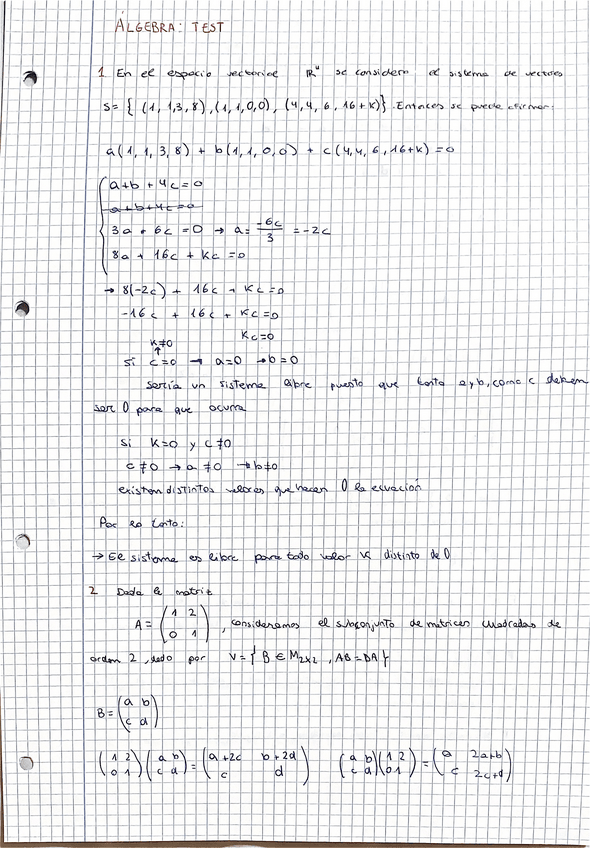 ÁLGEBRA: TEST
1 En el espacio vectorial ℝ⁴ se considera el sistema de vectores
S = { (1, 1, 3, 8), (1, 1, 0, 0), (4, 4, 6, 16+K)}. Entonces se puede afirmar:
a(1, 1, 3, 8) + b(1, 1, 0, 0) + c(4, 4, 6, 16+K) = 0
a+b + 4c = 0
a+b+4c = 0
3a + 6c = 0 → a = -6c/3 = -2c
8a + 16c + Kc = 0
→ 8(-2c) + 16c + Kc = 0
-16c + 16c + Kc = 0
Kc = 0
K≠0
↑
si c = 0 → a = 0 → b = 0
sería un sistema libre puesto que tanto a y b, como c deben
ser 0 para que ocurra
si K = 0 y c ≠ 0
c ≠ 0 → a ≠ 0 → b ≠ 0
existen distintos valores que hacen 0 la ecuación
Por lo tanto:
→ El sistema es libre para todo valor K distinto de 0
2 Dada la matriz
A = (1 2
0 1), consideramos el subconjunto de matrices cuadradas de
orden 2, dado por V = { B ∈ M₂ₓ₂, AB = BA }
B = (a b
c d)
(1 2 (a b = (a+2c b+2d (a b (1 2 = (a 2a+b
0 1) c d) c d) c d) 0 1) c 2c+d)